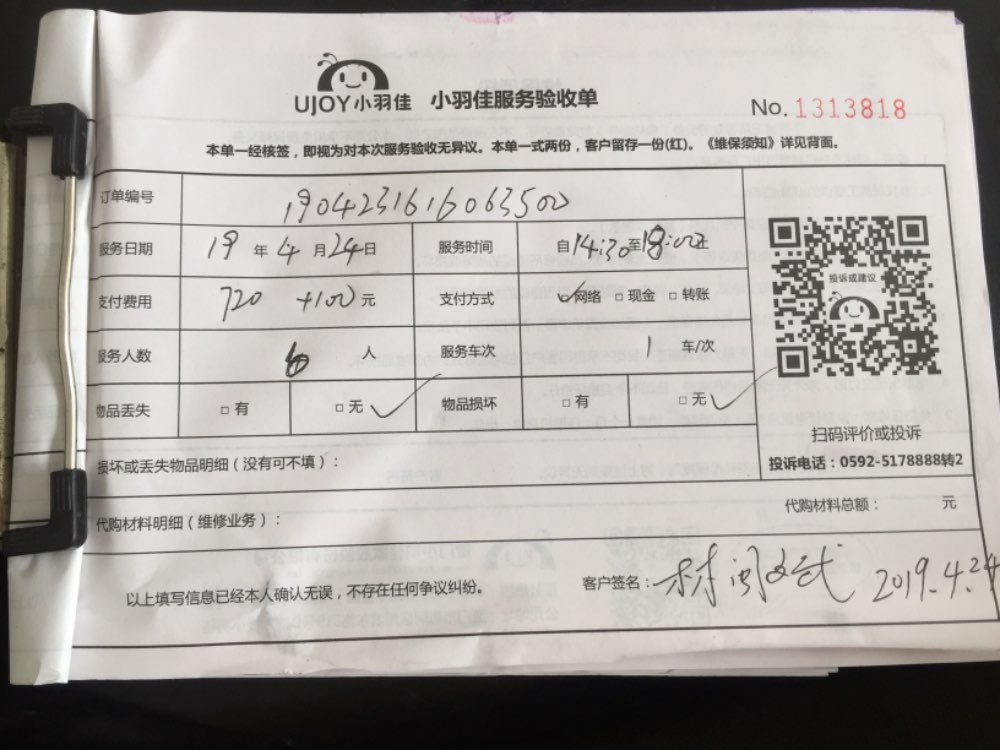 UJOY小羽佳 小羽佳服务验收单
No. 1313818
本单一经核签，即视为对本次服务验收无异议。本单一式两份，客户留存一份(红)。《维保须知》详见背面。
订单编号 1904231616063500
服务日期 19 年 4 月 24 日 服务时间 自 14:30 至 18:00 止
支付费用 720 +100 元 支付方式 ☑网络 □现金 □转账
服务人数 人 服务车次 1 车/次
物品丢失 □有 □无 ✓ 物品损坏 □有 □无 ✓
投诉或建议
扫码评价或投诉
投诉电话：0592-5178888转2
损坏或丢失物品明细（没有可不填）：
代购材料明细（维修业务）： 代购材料总额： 元
以上填写信息已经本人确认无误，不存在任何争议纠纷。 客户签名： 2019.4.24